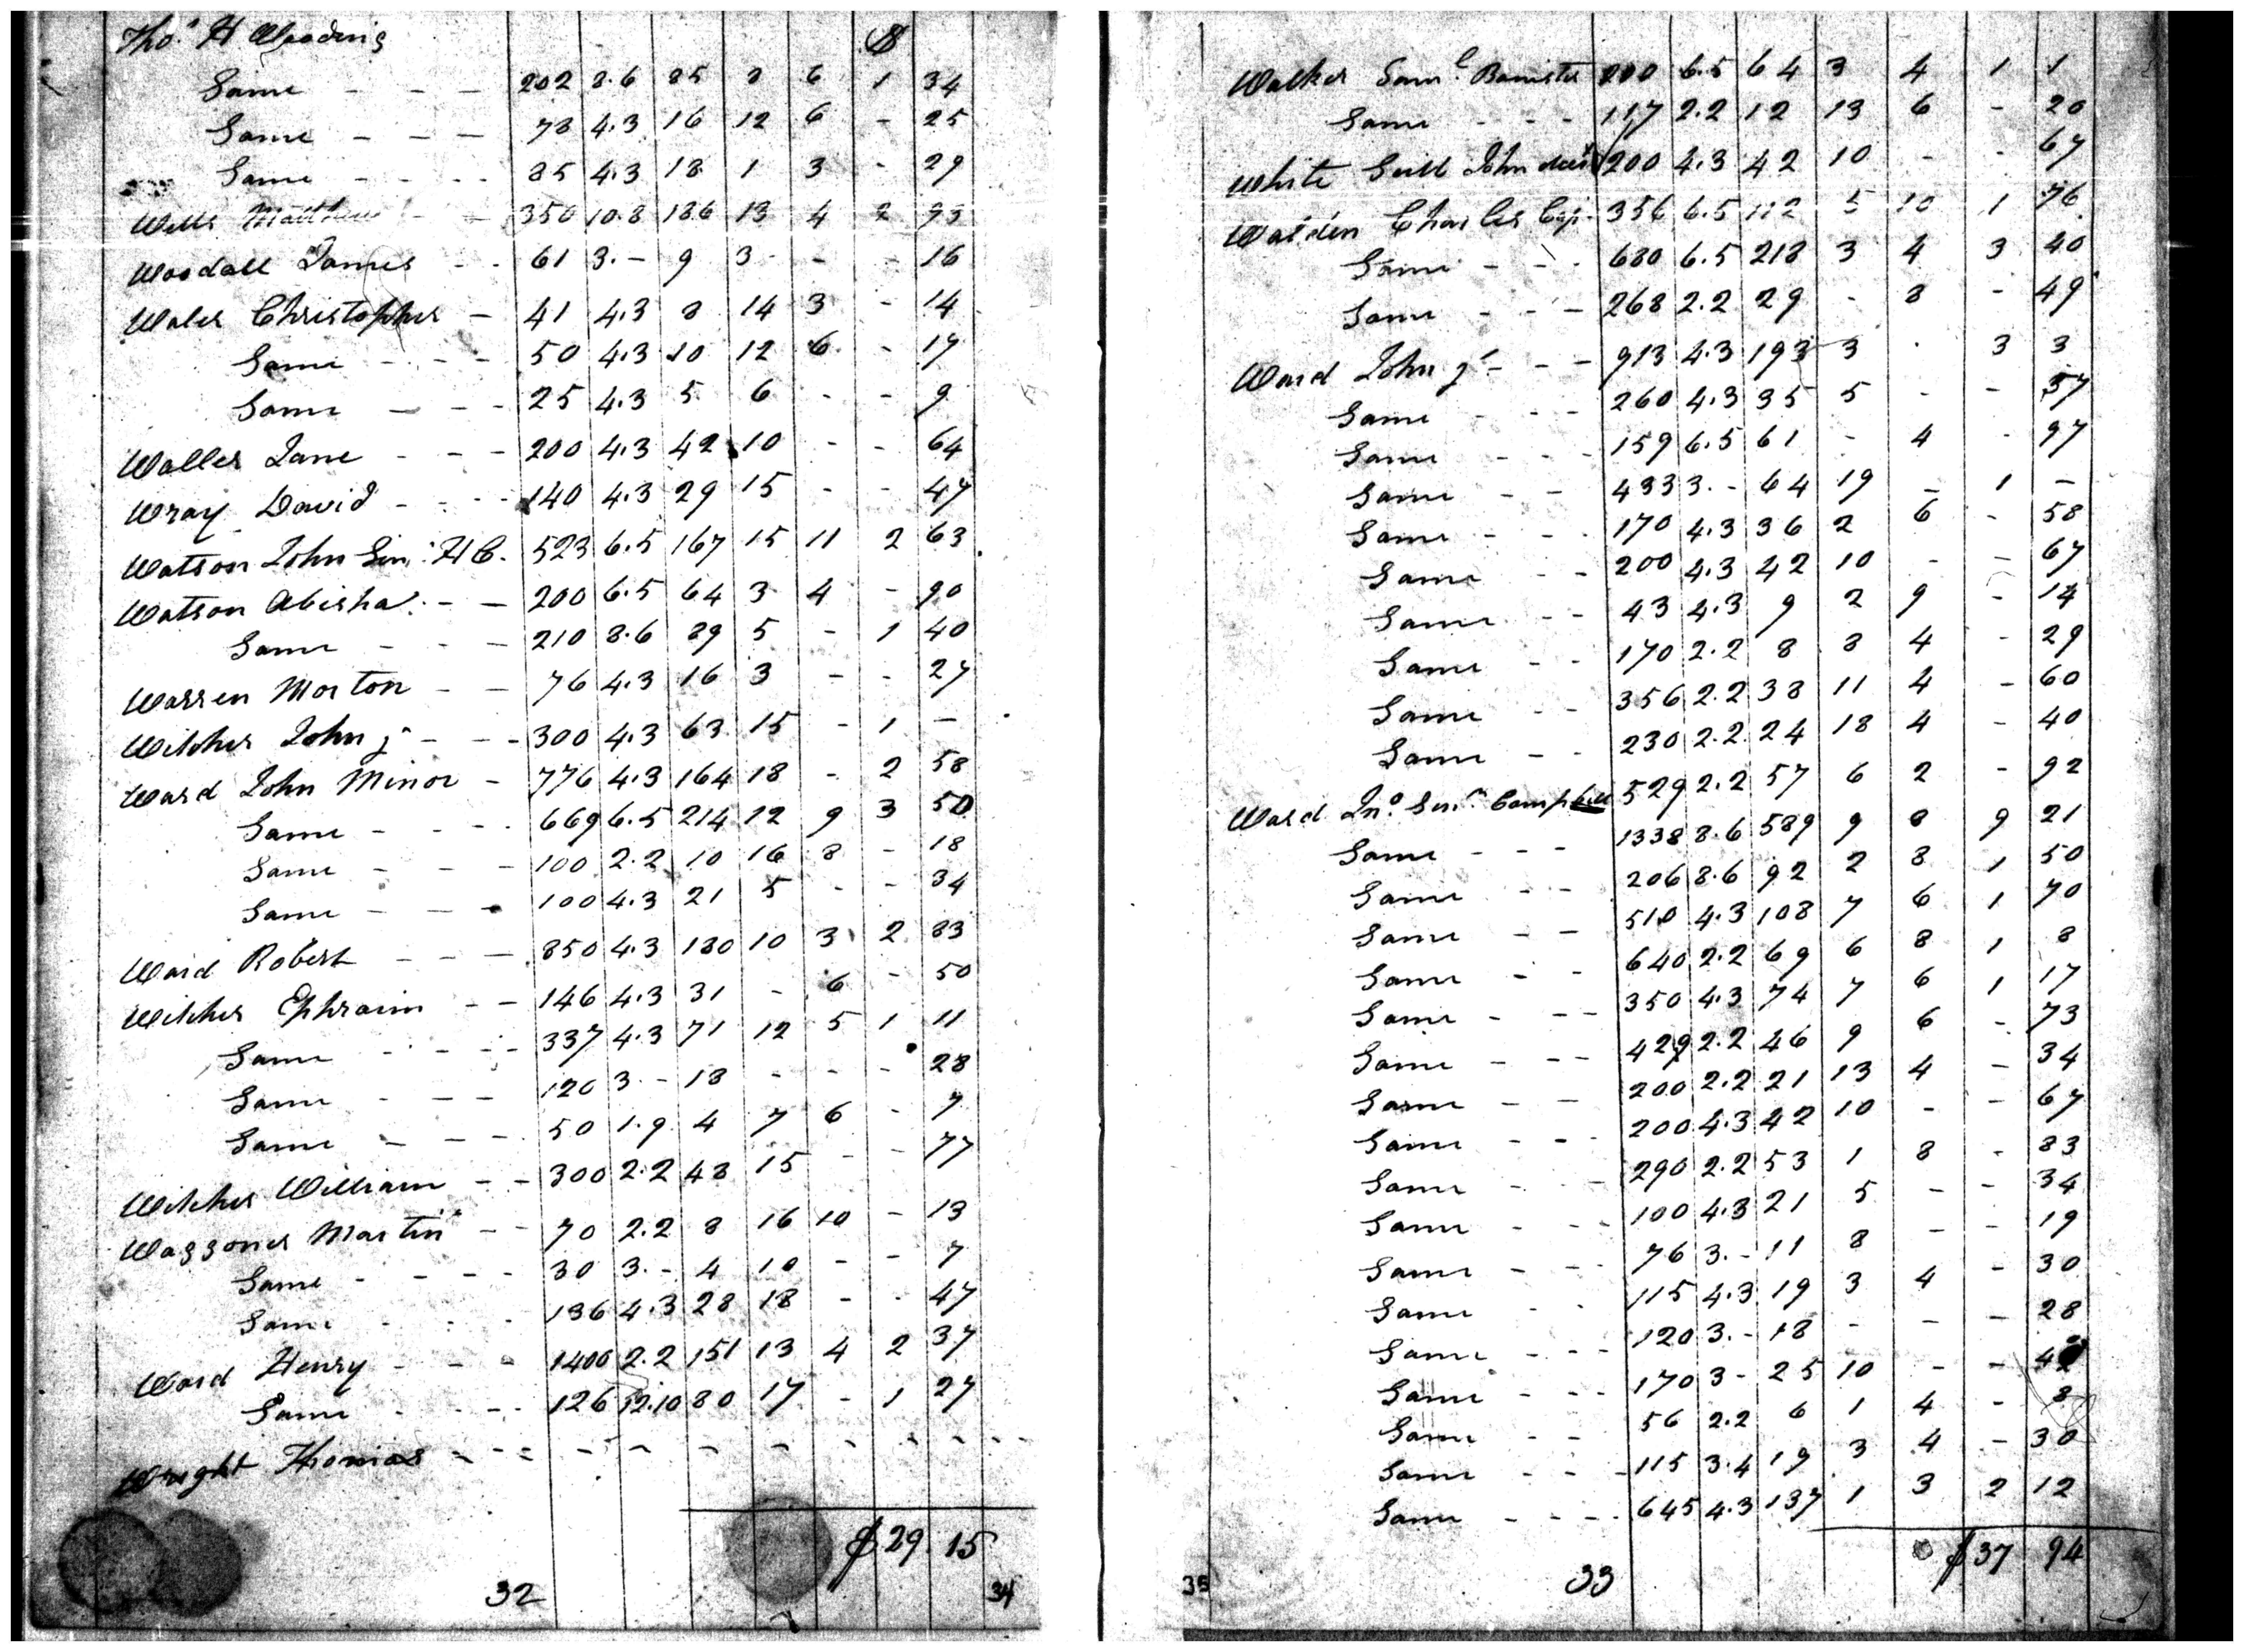 Thos. H Wooding $
Same - - - 202 8.6 85 8 6 1 34
Same - - - 78 4.3 16 12 6 - 25
Same - - - 85 4.3 18 1 3 - 29
Wells Matthew - - 350 10.8 186 13 4 2 95
Woodall James - - 61 3.- 9 3 - - 16
Wales Christopher - 41 4.3 8 14 3 - 14
Same - - - 50 4.3 10 12 6 - 17
Same - - - 25 4.3 5 6 - - 9
Waller Jane - - - 200 4.3 42 10 - - 64
Wray David - - - 140 4.3 29 15 - - 47
Watson John Sen. H C. 523 6.5 167 15 11 2 63
Watson Abisha - - 200 6.5 64 3 4 - 90
Same - - - 210 8.6 89 5 - 1 40
Warren Morton - - 76 4.3 16 3 - - 27
Witcher John jr - - - 300 4.3 63 15 - 1 -
Ward John Minor - 776 4.3 164 18 - 2 58
Same - - - 669 6.5 214 12 9 3 50
Same - - - 100 2.2 10 16 8 - 18
Same - - - 100 4.3 21 5 - - 34
Ward Robert - - - 850 4.3 180 10 3 2 83
Witcher Ephraim - - 146 4.3 31 - 6 - 50
Same - - - 337 4.3 71 12 5 1 11
Same - - - 120 3.- 18 - - - 28
Same - - - 50 1.9 4 7 6 - 7
Witcher William - - 300 2.2 48 15 - - 77
Waggoner Martin - - 70 2.2 8 16 10 - 13
Same - - - - 30 3.- 4 10 - - 7
Same - - - 136 4.3 28 18 - - 47
Ward Henry - - - 1400 2.2 151 13 4 2 37
Same - - - 126 12.10 80 17 - 1 27
Wright Thomas - - - - - - - - - - -
$29 15
32
34
Walker Saml. Banister 200 6.5 64 3 4 1 1
Same - - - 117 2.2 12 13 6 - 20
White Guill John 200 4.3 42 10 - - 67
Walden Charles 356 6.5 112 5 10 1 76
Same - - - 680 6.5 218 3 4 3 40
Same - - - 268 2.2 29 - 8 - 49
Ward John jr - - - 913 4.3 193 3 - 3 3
Same - - - 260 4.3 35 5 - - 57
Same - - - 159 6.5 61 - 4 - 97
Same - - 433 3.- 64 19 - 1 -
Same - - - 170 4.3 36 2 6 - 58
Same - - 200 4.3 42 10 - - 67
Same - - 43 4.3 9 2 9 - 14
Same - - 170 2.2 8 8 4 - 29
Same - - 356 2.2 38 11 4 - 60
Same - - 230 2.2 24 18 4 - 40
Ward Jno. Senr. Campbell 529 2.2 57 6 2 - 92
Same - - - 1338 8.6 589 9 8 9 21
Same - - 206 8.6 92 2 8 1 50
Same - - 510 4.3 108 7 6 1 70
Same - - 640 2.2 69 6 8 1 8
Same - - - 350 4.3 74 7 6 1 17
Same - - - 429 2.2 46 9 6 - 73
Same - - 200 2.2 21 13 4 - 34
Same - - - 200 4.3 42 10 - - 67
Same - - - 290 2.2 53 1 8 - 83
Same - - - 100 4.3 21 5 - - 34
Same - - - 76 3.- 11 8 - - 19
Same - - 115 4.3 19 3 4 - 30
Same - - - 120 3.- 18 - - - 28
Same - - - 170 3- 25 10 - -
Same - - 56 2.2 6 1 4 - 8
Same - - - 115 3.4 19 3 4 - 30
Same - - - 645 4.3 137 1 3 2 12
$37 94
33